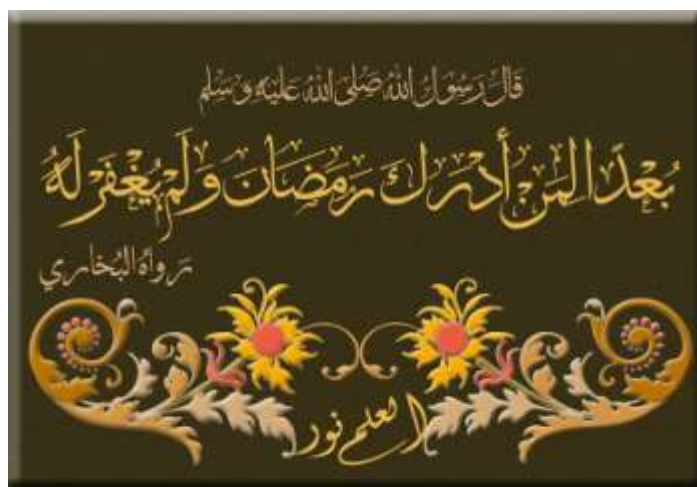 قَالَ رَسُولُ اللهُ صَلَى اللهُ عَلَيْهِ وَسَلَم
بُعْدًا لِمَنْ أَدْرَكَ رَمَضَانَ وَلَمْ يُغْفَرْ لَهُ
رَوَاهُ البُخَاري
العلم نور